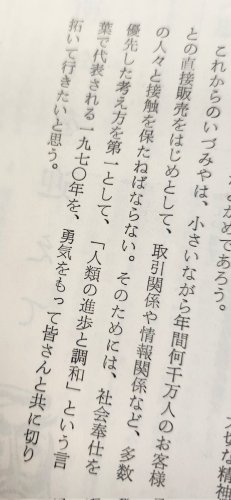 大切な精神
ためであろう。
これからのいづみやは、小さいながら年間何千万人のお客様
との直接販売をはじめとして、取引関係や情報関係など、多数
の人々と接触を保たねばならない。そのためには、社会奉仕を
優先した考え方を第一として、「人類の進歩と調和」という言
葉で代表される一九七〇年を、勇気をもって皆さんと共に切り
拓いて行きたいと思う。